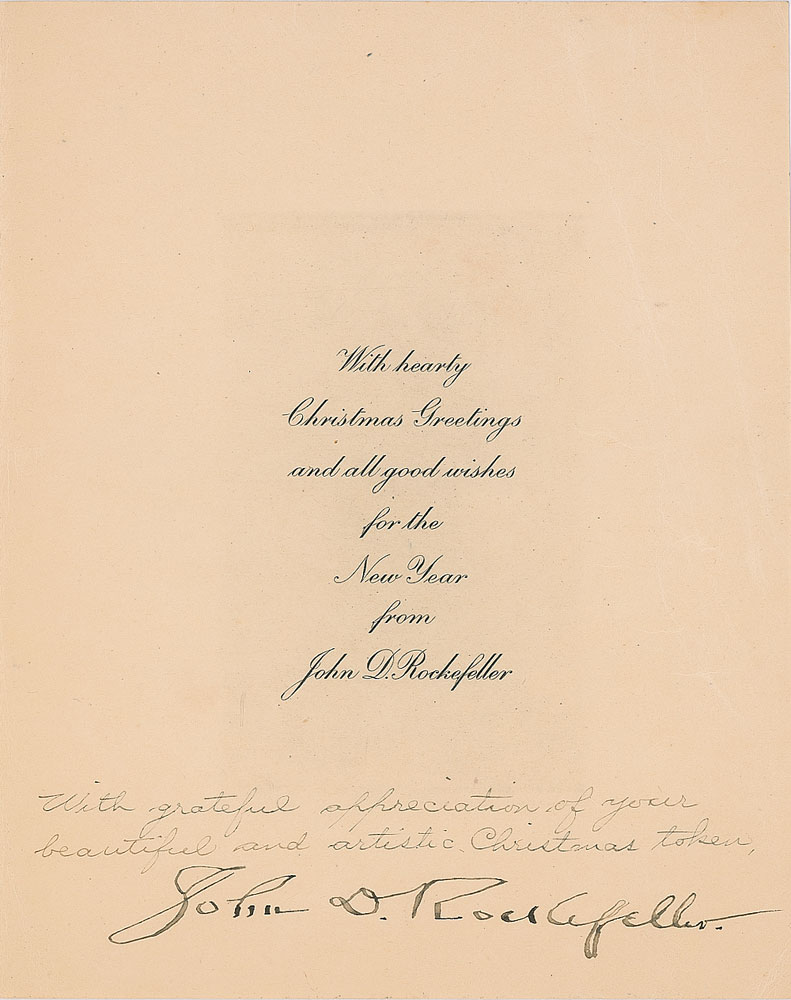 With hearty
Christmas Greetings
and all good wishes
for the
New Year
from
John D. Rockefeller
With grateful appreciation of your
beautiful and artistic Christmas token,
John D. Rockefeller.